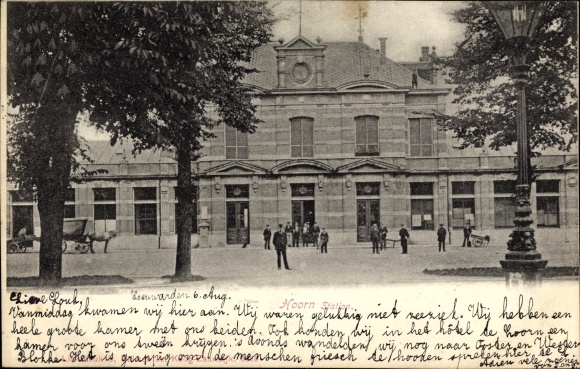 Leeuwarden 6 Aug.
Hoorn Station
Lieve Zouk,
Vanmiddag kwamen wij hier aan. Wij waren gelukkig niet zeeziek. Wij hebben een
heele groote kamer met ons beiden. Ook konden wij, in het hôtel te Hoorn een
kamer voor ons tweën krijgen. 's avonds wandelden wij nog naar Ooster en Wester
Blokker. Het is grappig om de menschen friesch te hooren spreken hier, te
Adieu vele zoenen